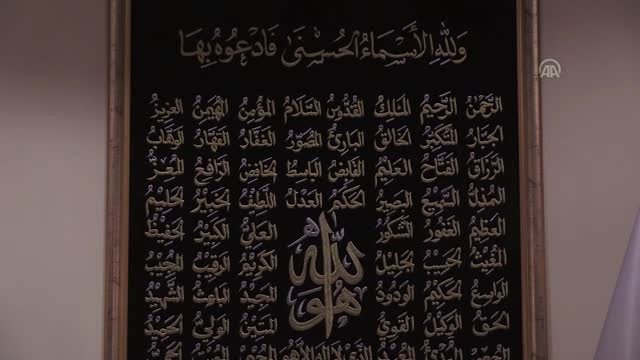 وَلِلَّهِ الْأَسْمَاءُ الْحُسْنَىٰ فَادْعُوهُ بِهَا
الرَّحْمٰنُ الرَّحِيمُ الْمَلِكُ الْقُدُّوسُ السَّلَامُ الْمُؤْمِنُ الْمُهَيْمِنُ الْعَزِيزُ
الْجَبَّارُ الْمُتَكَبِّرُ الْخَالِقُ الْبَارِئُ الْمُصَوِّرُ الْغَفَّارُ الْقَهَّارُ الْوَهَّابُ
الرَّزَّاقُ الْفَتَّاحُ الْعَلِيمُ الْقَابِضُ الْبَاسِطُ الْخَافِضُ الرَّافِعُ الْمُعِزُّ
الْمُذِلُّ السَّمِيعُ الْبَصِيرُ الْحَكَمُ الْعَدْلُ اللَّطِيفُ الْخَبِيرُ الْحَلِيمُ
الْعَظِيمُ الْغَفُورُ الشَّكُورُ الْعَلِيُّ الْكَبِيرُ الْحَفِيظُ
الْمُقِيتُ الْحَسِيبُ الْجَلِيلُ الْكَرِيمُ الرَّقِيبُ الْمُجِيبُ
الْوَاسِعُ الْحَكِيمُ الْوَدُودُ الْمَجِيدُ الْبَاعِثُ الشَّهِيدُ
الْحَقُّ الْوَكِيلُ الْقَوِيُّ الْمَتِينُ الْوَلِيُّ الْحَمِيدُ
هُوَ اللّٰه
AA